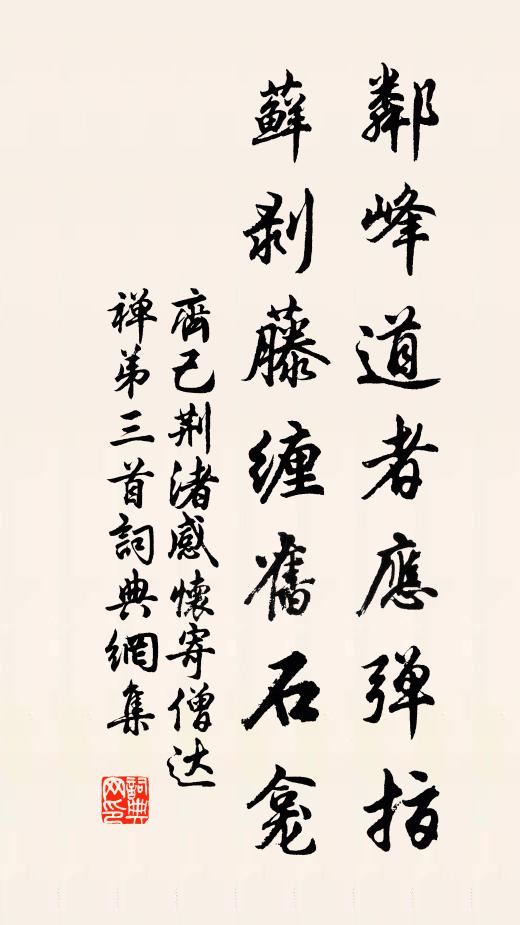 鄰峰道者應弾指
蘚剥藤纏舊石龛
齊己荆渚感懷寄僧达
禅弟三首詞典網集
詞典網印